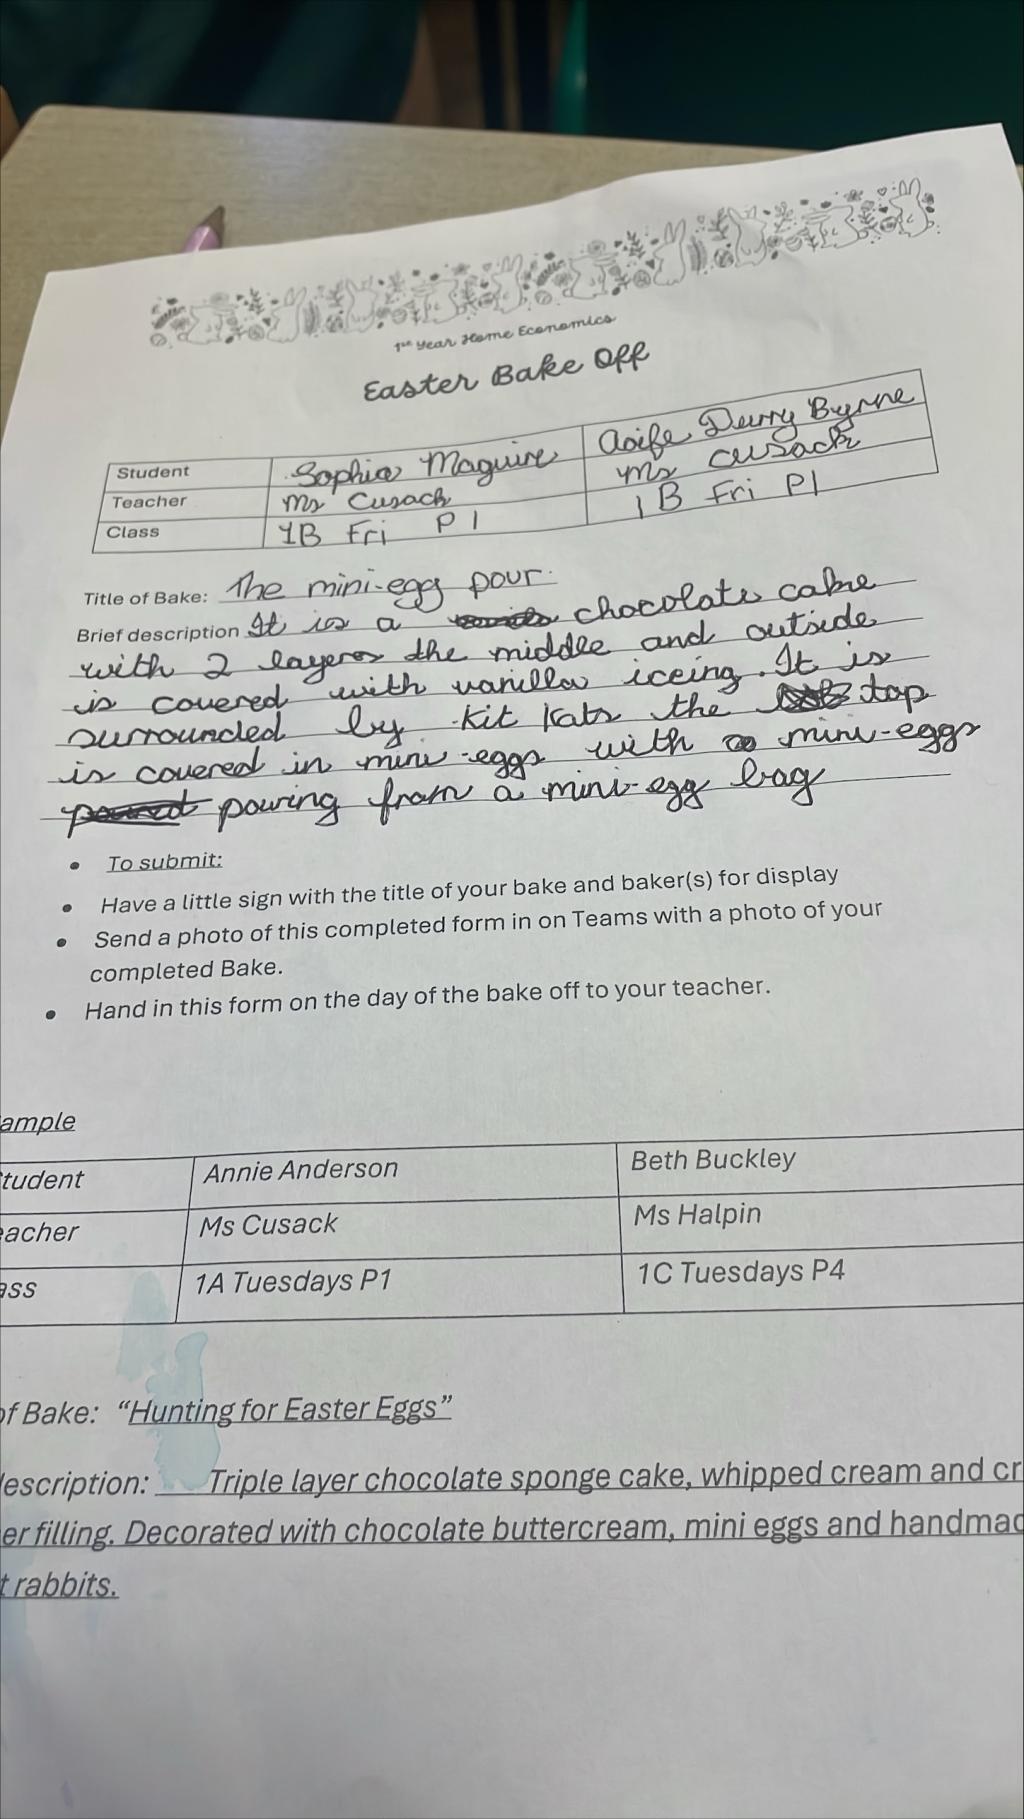 1st Year Home Economics
Easter Bake Off
Student Sophia Maguire Aoife Durry Byrne
Teacher Ms Cusack Ms Cusack
Class 1B Fri P1 1B Fri P1
Title of Bake: The mini-egg pour.
Brief description It is a chocolate cake
with 2 layers the middle and outside
is covered with vanilla iceing. It is
surrounded by Kit Kats the top
is covered in mini-eggs with mini-eggs
pouring from a mini-egg bag
To submit:
Have a little sign with the title of your bake and baker(s) for display
Send a photo of this completed form in on Teams with a photo of your
completed Bake.
Hand in this form on the day of the bake off to your teacher.
ample
tudent Annie Anderson Beth Buckley
eacher Ms Cusack Ms Halpin
ass 1A Tuesdays P1 1C Tuesdays P4
of Bake: “Hunting for Easter Eggs”
description: Triple layer chocolate sponge cake, whipped cream and cr
er filling. Decorated with chocolate buttercream, mini eggs and handmad
t rabbits.